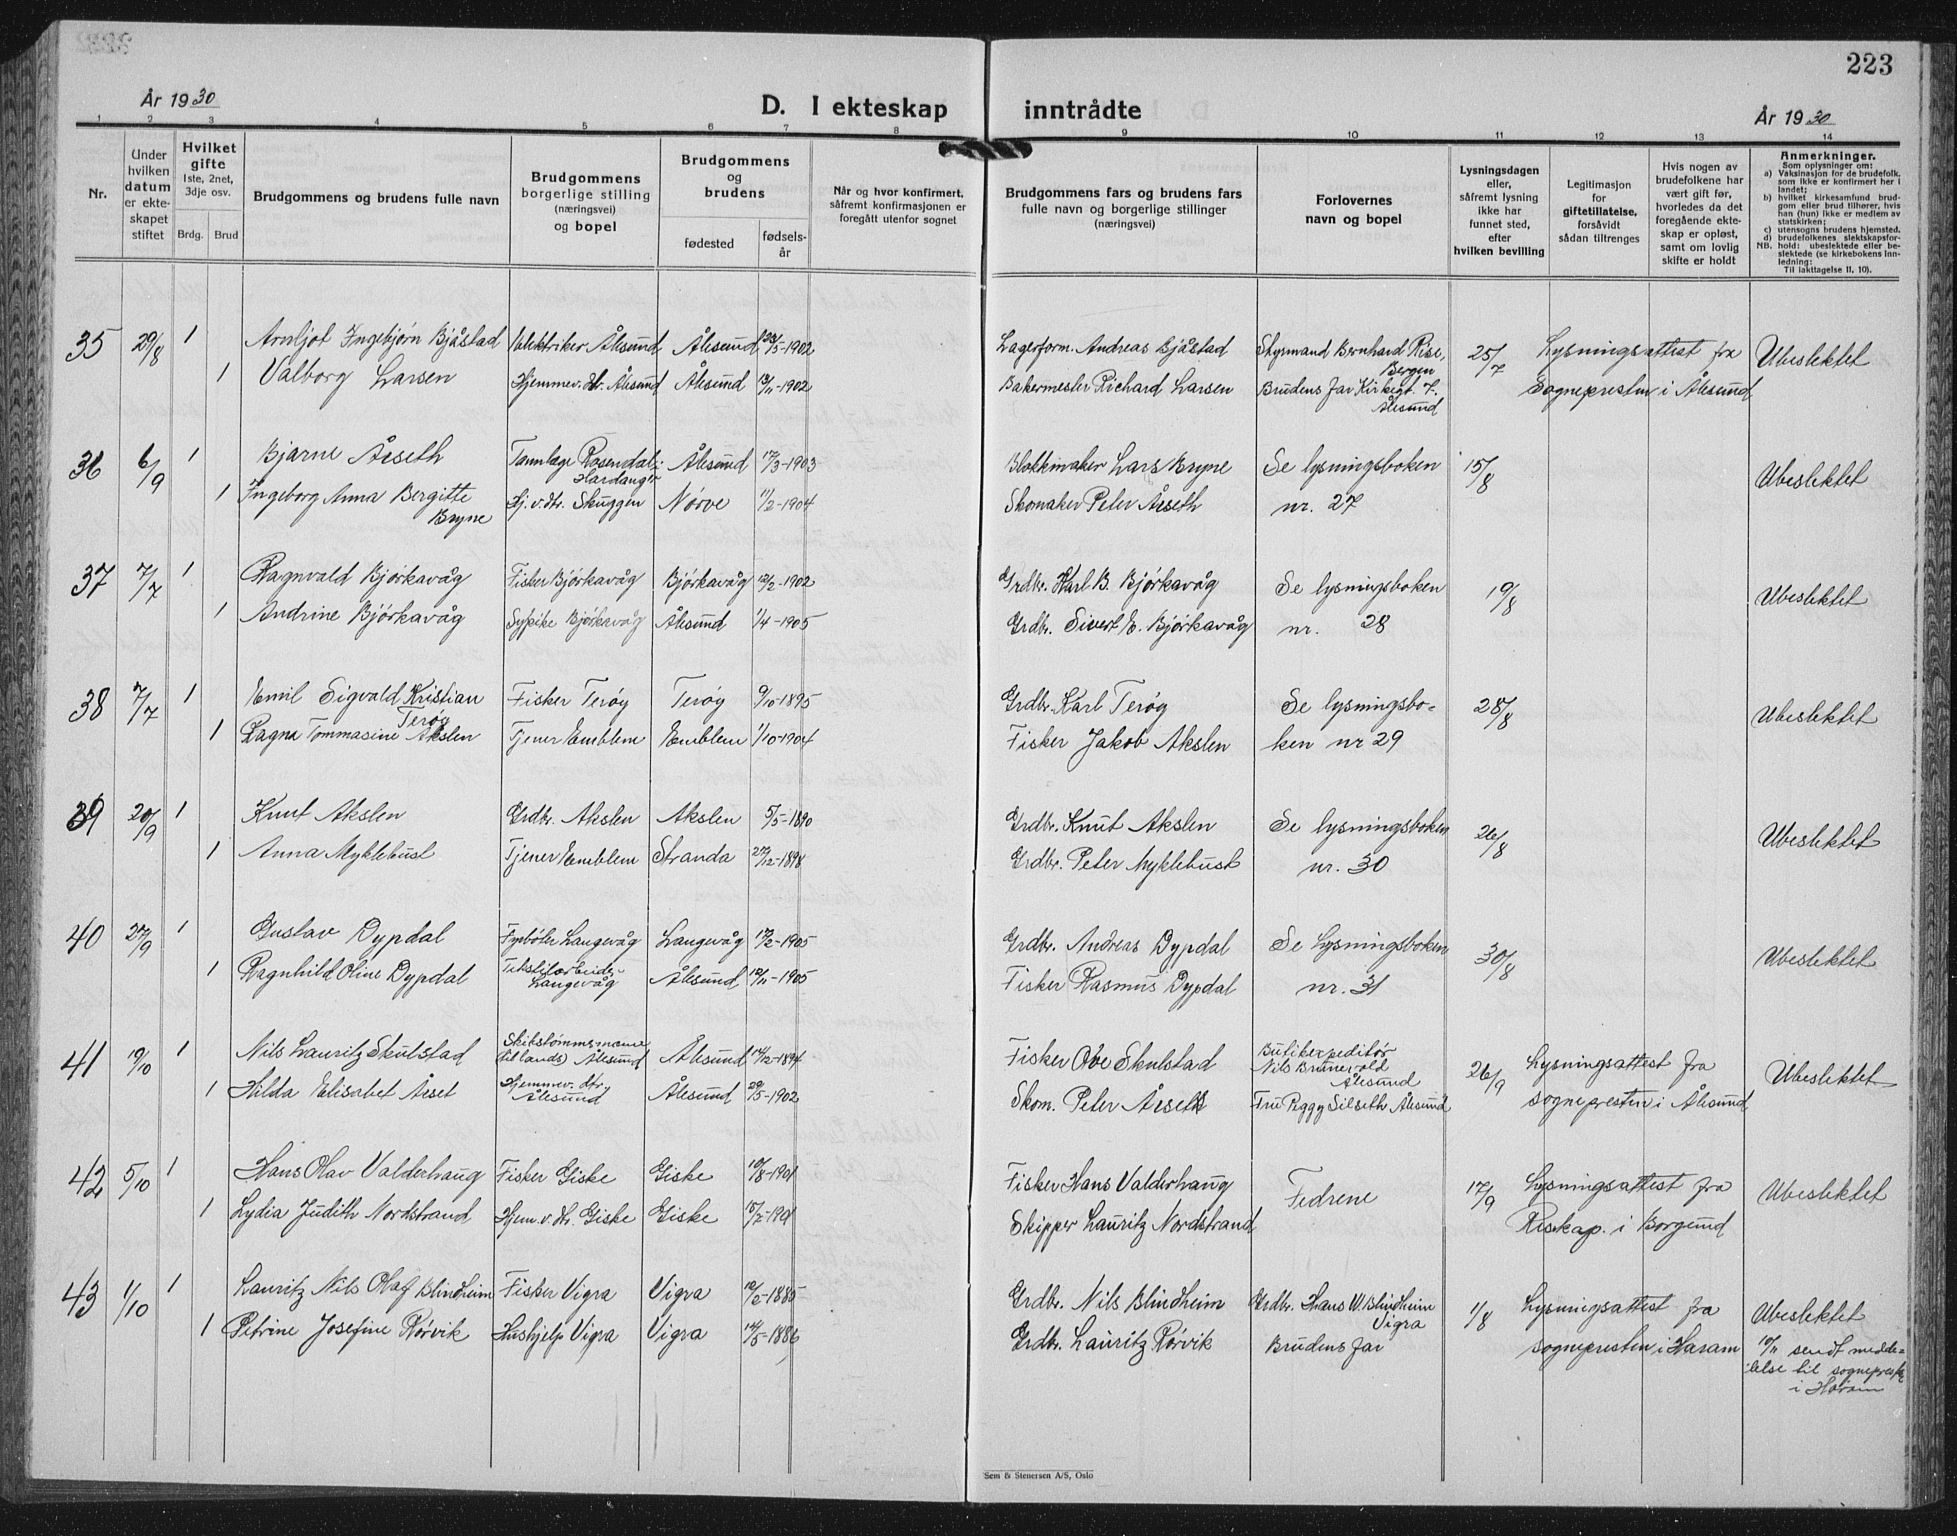 223
År 1930
D. I ekteskap inntrådte
År 1930
1 2 3 4 5 6 7 8 9 10 11 12 13 14
Nr.
Under hvilken datum er ekteskapet stiftet
Hvilket gifte
1ste, 2net, 3dje osv.
Brdg. Brud
Brudgommens og brudens fulle navn
Brudgommens borgerlige stilling (næringsvei) og bopel
Brudgommens og brudens
fødested
fødselsår
Når og hvor konfirmert, såfremt konfirmasjonen er foregått utenfor sognet
Brudgommens fars og brudens fars fulle navn og borgerlige stillinger (næringsvei)
Forlovernes navn og bopel
Lysningsdagen eller, såfremt lysning ikke har funnet sted, efter hvilken bevilling
Legitimasjon for giftetillatelse, forsåvidt sådan tiltrenges
Hvis nogen av brudefolkene har vært gift før, hvorledes da det foregående ekteskap er opløst, samt om lovlig skifte er holdt
Anmerkninger.
Som oplysninger om:
a) Vaksinasjon for de brudefolk, som ikke er konfirmert her i landet;
b) hvilket kirkesamfund brudgom eller brud tilhører, hvis han (hun) ikke er medlem av statskirken;
c) utensogns brudens hjemsted.
d) brudefolkenes slektskapsforhold: ubeslektede eller beslektede (se kirkebokens innledning:
NB.
Til iakttagelse II, 10).
35 29/8 1 Arnljot Ingebjørn Bjåstad Elektriker Ålesund Ålesund 23/5-1902 Lagerform. Andreas Bjåstad Styrmand Bernhard Rise, Bergen 25/7 Lysningsattest fra Ubeslektet
1 Valborg Larsen Hjemmev. dtr. Ålesund Ålesund 13/11-1902 Bakermester Richard Larsen Brudens far Kirkegt. 7. Ålesund Sognepresten i Ålesund
36 6/9 1 Bjarne Årseth Tannlæge Rosendal i Hardanger Ålesund 17/3-1903 Blokkmaker Lars Bryne Se lysningsboken 15/8 Ubeslektet
1 Ingeborg Anna Bergitte Bryne Hj.v.dtr. Skuggen Nørve 11/2-1904 Skomaker Peter Årseth nr. 27
37 7/7 1 Ragnvald Bjørkavåg Fisker Bjørkavåg Bjørkavåg 12/2-1902 Grdbr. Karl B. Bjørkavåg Se lysningsboken 19/8 Ubeslektet
1 Andrine Bjørkavåg Sypike Bjørkavåg Ålesund 1/4-1905 Grdbr. Sivert E. Bjørkavåg nr. 28
38 7/7 1 Emil Sigvald Kristian Terøy Fisker Terøy Terøy 9/10-1895 Grdbr. Karl Terøy Se lysningsbo- 28/8 Ubeslektet
1 Ragna Tommasine Akslen Tjener Emblem Emblem 1/10-1904 Fisker Jakob Akslen ken nr 29
39 20/9 1 Knut Akslen Grdbr. Akslen Akslen 5/5-1890 Grdbr. Knut Akslen Se lysningsboken 26/8 Ubeslektet
1 Anna Myklebust Tjener Emblem Stranda 27/12-1898 Grdbr. Peter Myklebust nr. 30
40 27/9 1 Gustav Dypdal Fyrbøter Langevåg Langevåg 17/2-1905 Grdbr. Andreas Dypdal Se Lysningsboken 30/8 Ubeslektet
1 Ragnhild Oline Dypdal Tekstilarbeider Langevåg Ålesund 12/11-1905 Fisker Rasmus Dypdal nr. 31
41 19/10 1 Nils Lauritz Skulstad Skibstømmermann (tillands) Ålesund Ålesund 14/12-1894 Fisker Ove Skulstad Butikexpeditør Nils Ålesund 26/9 Lysningsattest fra Ubeslektet
1 Hilda Elisabet Årset Hjemmev. dtr. Ålesund Ålesund 29/5-1902 Skom. Peter Årseth Fru Peggy Silseth Ålesund sognepresten i Ålesund
42 5/10 1 Hans Olav Valderhaug Fisker Giske Giske 10/8-1901 Fisker Hans Valderhaug Fedrene 17/9 Lysningsattest fra Ubeslektet
1 Lydia Judith Nordstrand Hjem.v.dtr. Giske Giske Skipper Lauritz Nordstrand Reskap. i Borgund
43 1/10 1 Lauritz Nils Olaf Blindheim Fisker Vigra Vigra Grdbr. Nils Blindheim Grdbr. Hans W. Blindheim Vigra 1/8 Lysningsattest fra Ubeslektet
1 Petrine Josefine Rørvik Hushjelp Vigra Vigra 14/5-1886 Grdbr. Lauritz Rørvik Brudens far sognepresten i Haram 10/11 sendt meddelelse til sognepresten i Haram
Sem & Stenersen A/S, Oslo